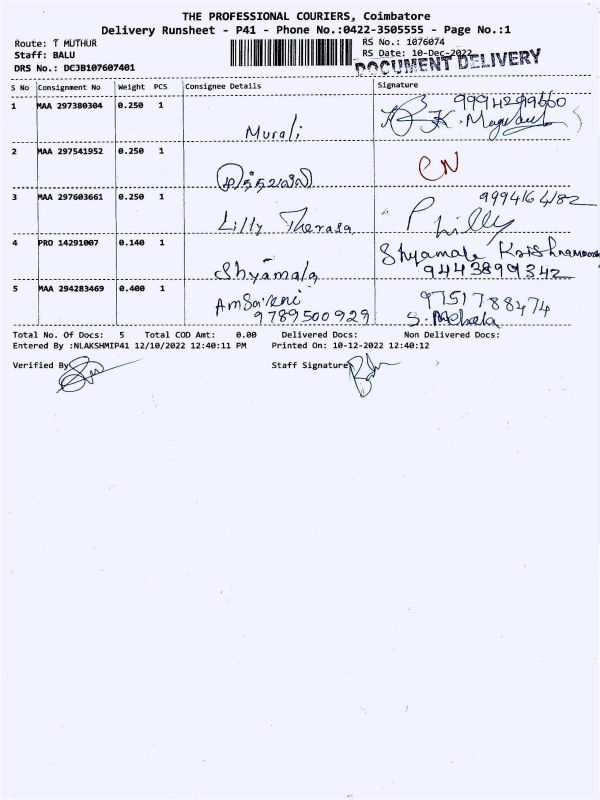 THE PROFESSIONAL COURIERS, Coimbatore
Delivery Runsheet - P41 - Phone No.:0422-3505555 - Page No.:1
Route: T MUTHUR
RS No.: 1076074
Staff: BALU
RS Date: 10-Dec-2022
DRS No.: DCJB107607401
DOCUMENT DELIVERY
S No Consignment No Weight PCS Consignee Details Signature
1 MAA 297380304 0.250 1 Murali 9994299660
2 MAA 297541952 0.250 1 முத்துவல்லி
3 MAA 297603661 0.250 1 Lilly Therasa 9994164182
4 PRO 14291007 0.140 1 Shyamala Shyamala 9443899342
5 MAA 294283469 0.400 1 9789500929 9751788474
Total No. Of Docs: 5 Total COD Amt: 0.00 Delivered Docs: Non Delivered Docs:
Entered By :NLAKSHMIP41 12/10/2022 12:40:11 PM Printed On: 10-12-2022 12:40:12
Verified By Staff Signature